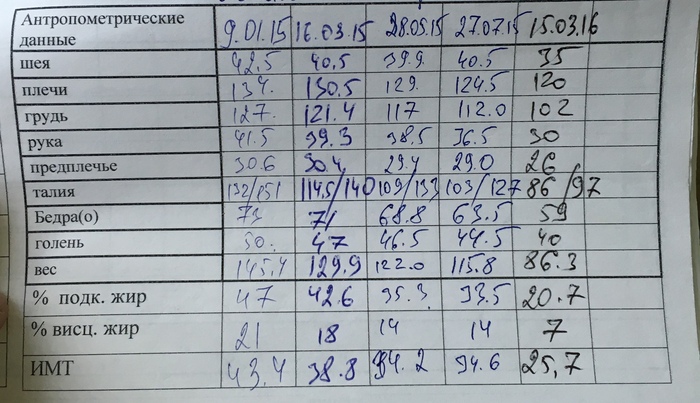 Антропометрические данные 9.01.15 16.03.15 28.05.15 27.07.15 15.03.16
шея 42,5 40,5 39.9. 40.5 35
плечи 134. 130.5 129. 124.5 120
грудь 127. 121.4 117 112.0 102
рука 41.5 39.3 38,5 36.5 30
предплечье 30.6 30.4 29.4 29.0 26
талия 132/151 114.5/140 109/133 103/127 86/97
Бедра(о) 73 71 68.8 63.5 59
голень 50. 47 46.5 44.5 40
вес 145,4 129.9 122.0 115.8 86.3
% подк. жир 47 42.6 35.3 33.5 20.7
% висц. жир 21 18 14 14 7
ИМТ 43.4 38.8 34.2 34.6 25,7